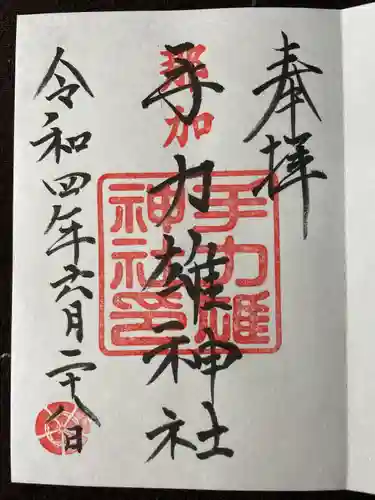 奉拝
那加
手力雄神社
手力雄
神社印
令和四年六月二十八日